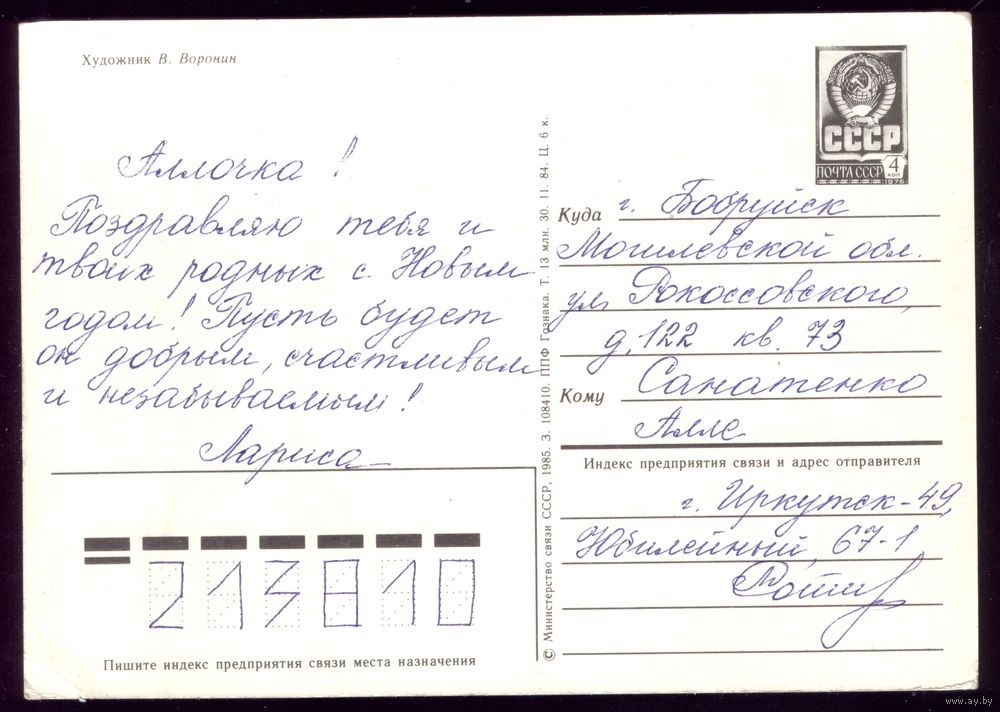 Художник В. Воронин
Аллочка!
Поздравляю тебя и
твоих родных с Новым
годом! Пусть будет
он добрым, счастливым
и незабываемым!
Лариса
213810
Пишите индекс предприятия связи места назначения
© Министерство связи СССР, 1985. З. 108410. ППФ Гознака. Т. 13 млн. 30. 11. 84. Ц. 6 к.
СССР
ПОЧТА СССР
4
КОП
1976
Куда г. Бобруйск
Могилевской обл.
ул. Рокоссовского,
д. 122 кв. 73
Кому Санатенко
Алле
Индекс предприятия связи и адрес отправителя
г. Иркутск-49,
Юбилейный, 67-1
www.ay.by